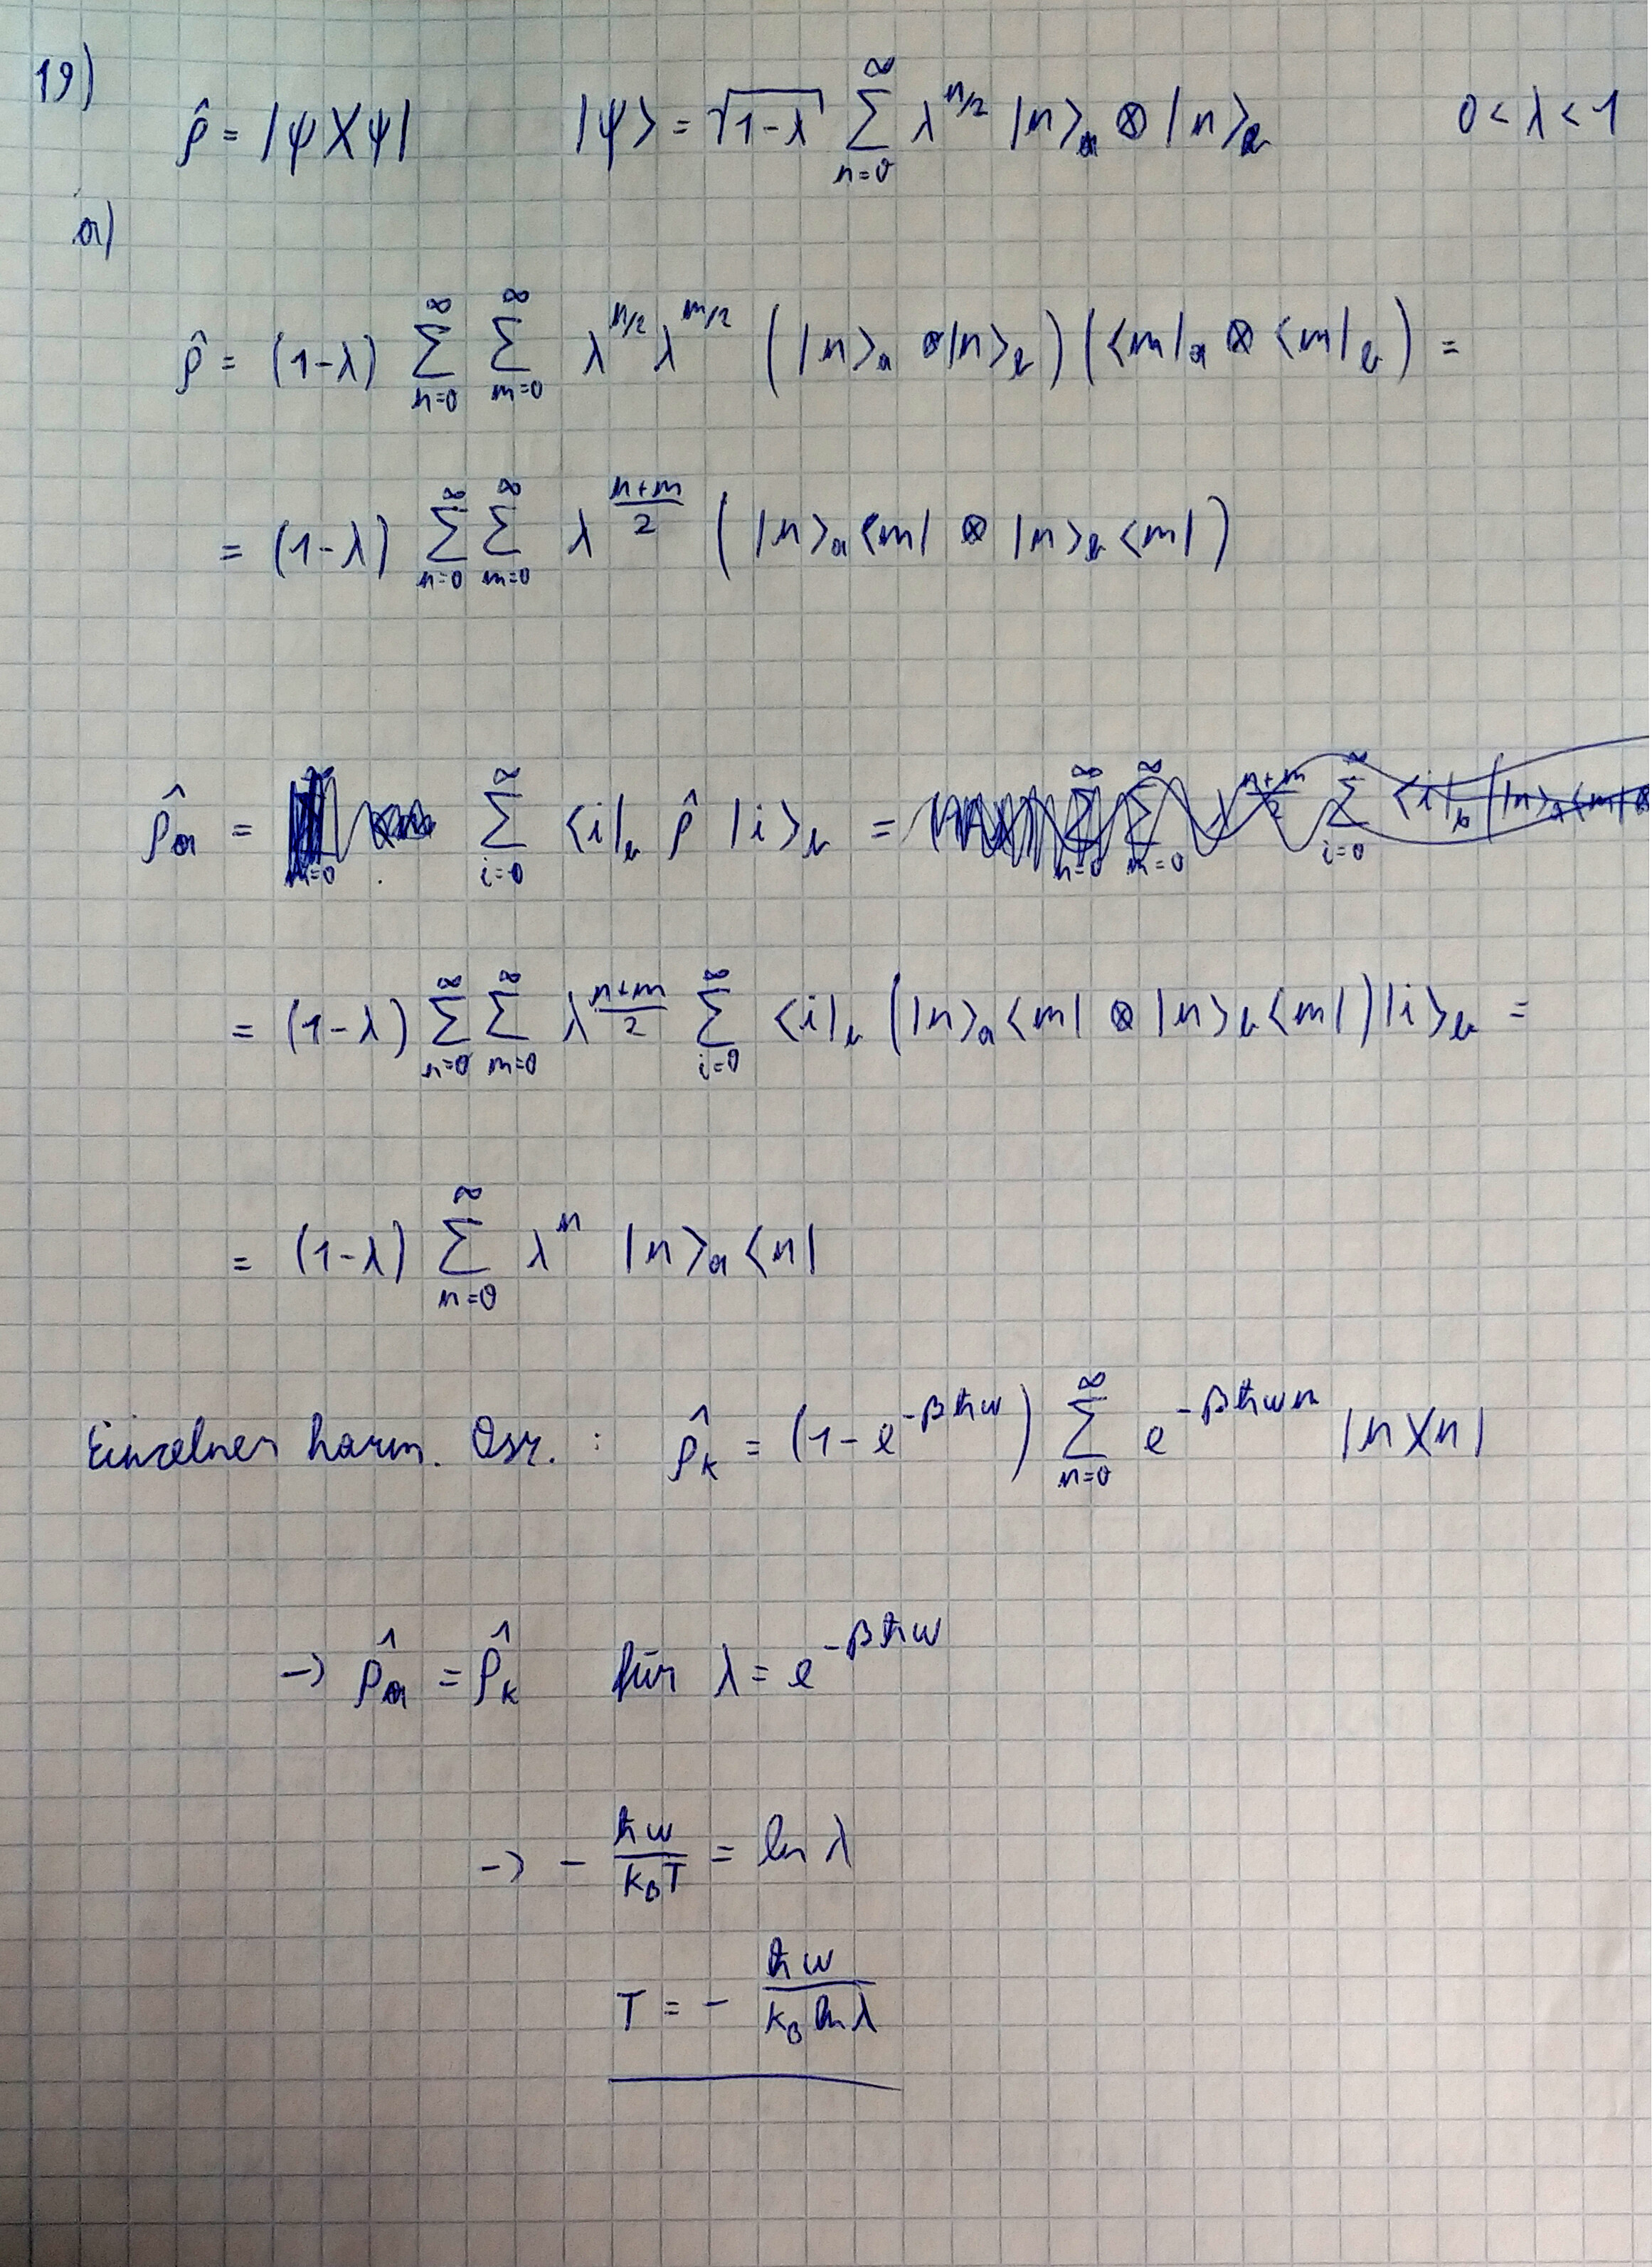 19)
ρ̂ = |ψ⟩⟨ψ|   |ψ⟩ = √(1-λ) ∑_{n=0}^{∞} λ^{n/2} |n⟩_a ⊗ |n⟩_b   0 < λ < 1
a)
ρ̂ = (1-λ) ∑_{n=0}^{∞} ∑_{m=0}^{∞} λ^{n/2} λ^{m/2} (|n⟩_a ⊗ |n⟩_b) (⟨m|_a ⊗ ⟨m|_b) =
= (1-λ) ∑_{n=0}^{∞} ∑_{m=0}^{∞} λ^{(n+m)/2} (|n⟩_a⟨m| ⊗ |n⟩_b⟨m|)
ρ̂_a = ∑_{i=0}^{∞} ⟨i|_b ρ̂ |i⟩_b =
= (1-λ) ∑_{n=0}^{∞} ∑_{m=0}^{∞} λ^{(n+m)/2} ∑_{i=0}^{∞} ⟨i|_b (|n⟩_a⟨m| ⊗ |n⟩_b⟨m|) |i⟩_b =
= (1-λ) ∑_{n=0}^{∞} λ^n |n⟩_a⟨n|
Einzelner harm. Osz. : ρ̂_k = (1 - e^{-βħω}) ∑_{n=0}^{∞} e^{-βħωn} |n⟩⟨n|
→ ρ̂_a = ρ̂_k für λ = e^{-βħω}
→ - ħω/(k_B T) = ln λ
T = - ħω/(k_B ln λ)